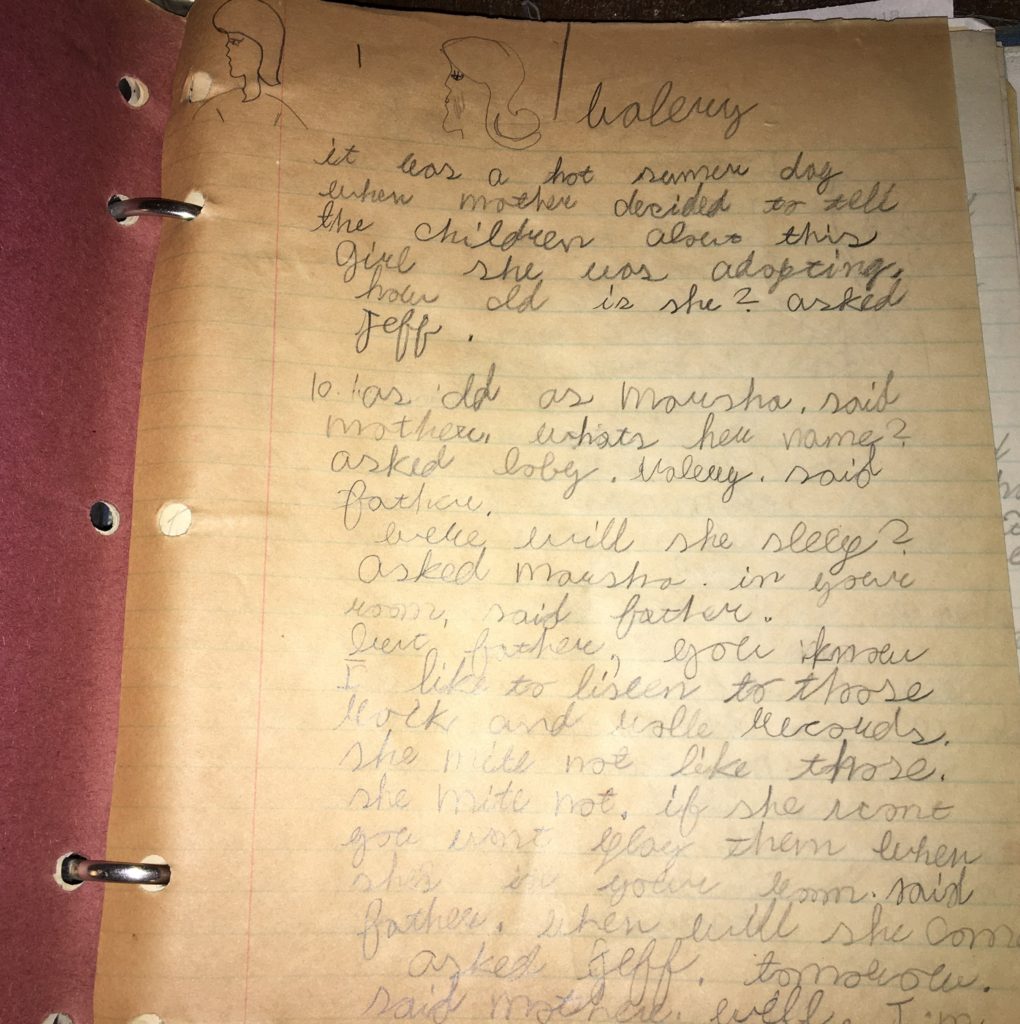 1
Valery
it was a hot sumer day
when mother decided to tell
the children about this
Girl she was adopting.
how old is she? asked
Jeff.
10. as old as Marsha. said
mother. whats her name?
asked boby. Valery. said
father.
were will she sleep?
asked marsha. in your
room, said father.
but father, you know
I like to listen to those
Rock and rolle Records.
she mite not like those.
she mite not. if she
you wont play them when
shes in your room. said
father. when will she Come
asked Jeff. tomorow.
said mother. well. I'm